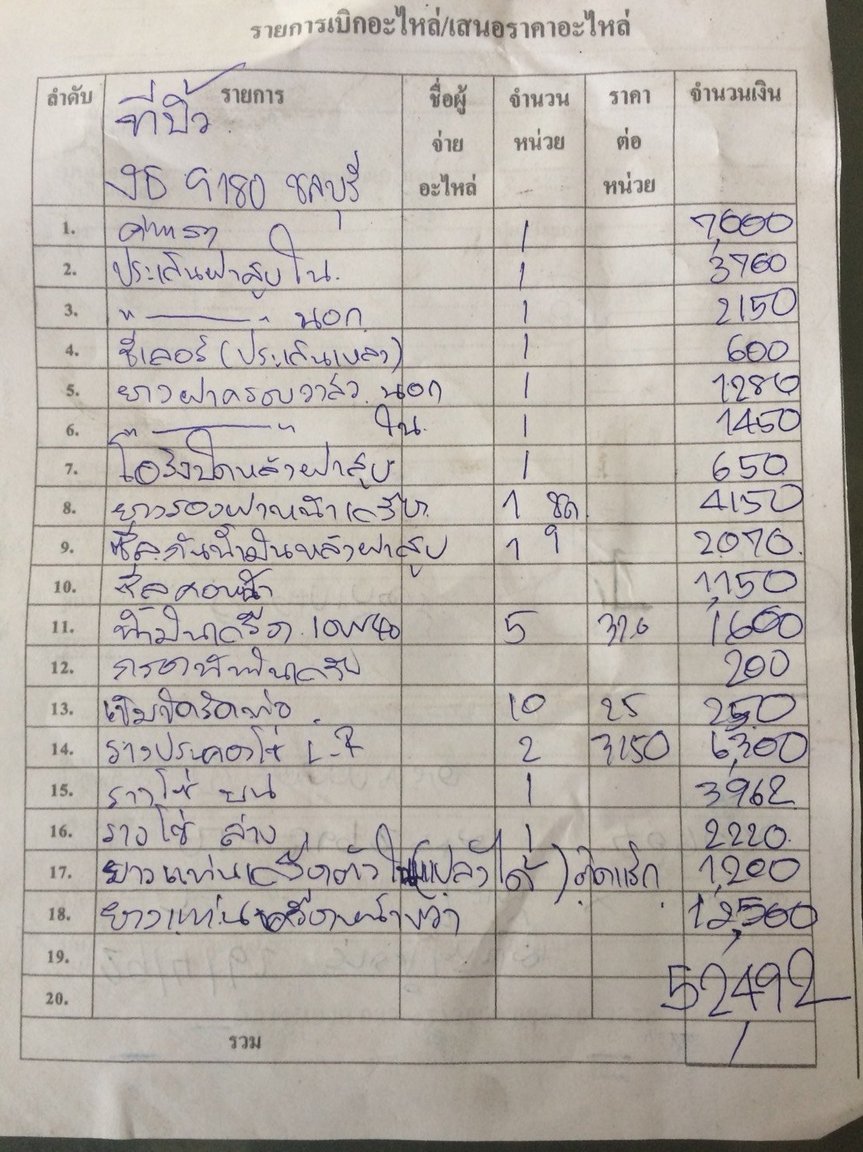 รายการเบิกอะไหล่/เสนอราคาอะไหล่
ลำดับ รายการ ชื่อผู้จ่ายอะไหล่ จำนวนหน่วย ราคาต่อหน่วย จำนวนเงิน
ที่ปิ้ว
9180 ชลบุรี
1. 1 7,000
2. ประเก็นฝาสูบ ใน. 1 3760
3. " ——— " นอก 1 2150
4. ชีเลอร์ (ประเก็นเหลว) 1 600
5. ยางฝาครอบวาล์ว นอก 1 1280
6. " ——— " ใน. 1 1450
7. โอริงปิดหลังฝาสูบ 1 650
8. ยางรองฝาหน้าเครื่อง 1 ชุด. 4150
9. ซีลกันน้ำมันหลังฝาสูบ 1 2070.
10. ซีลคอหน้า 1,150
11. น้ำมันเครื่อง 10W40 5 320 1600
12. กรองน้ำมันเครื่อง 200
13. เข็มขัดรัดท่อ 10 25 250
14. รางประคองโซ่ L-R 2 3150 6,300
15. รางโซ่ บน 1 3962
16. รางโซ่ ล่าง 1 2220.
17. ยางแท่นเครื่องตัวใน (แปลงได้) 1,200
18. ยางแท่นเครื่องหน้าขวา 12,500
19.
20. 52492
รวม /